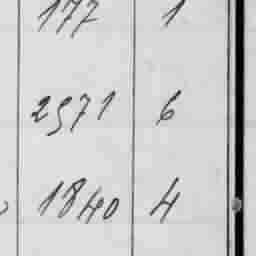 177 1
2571 6
1840 4